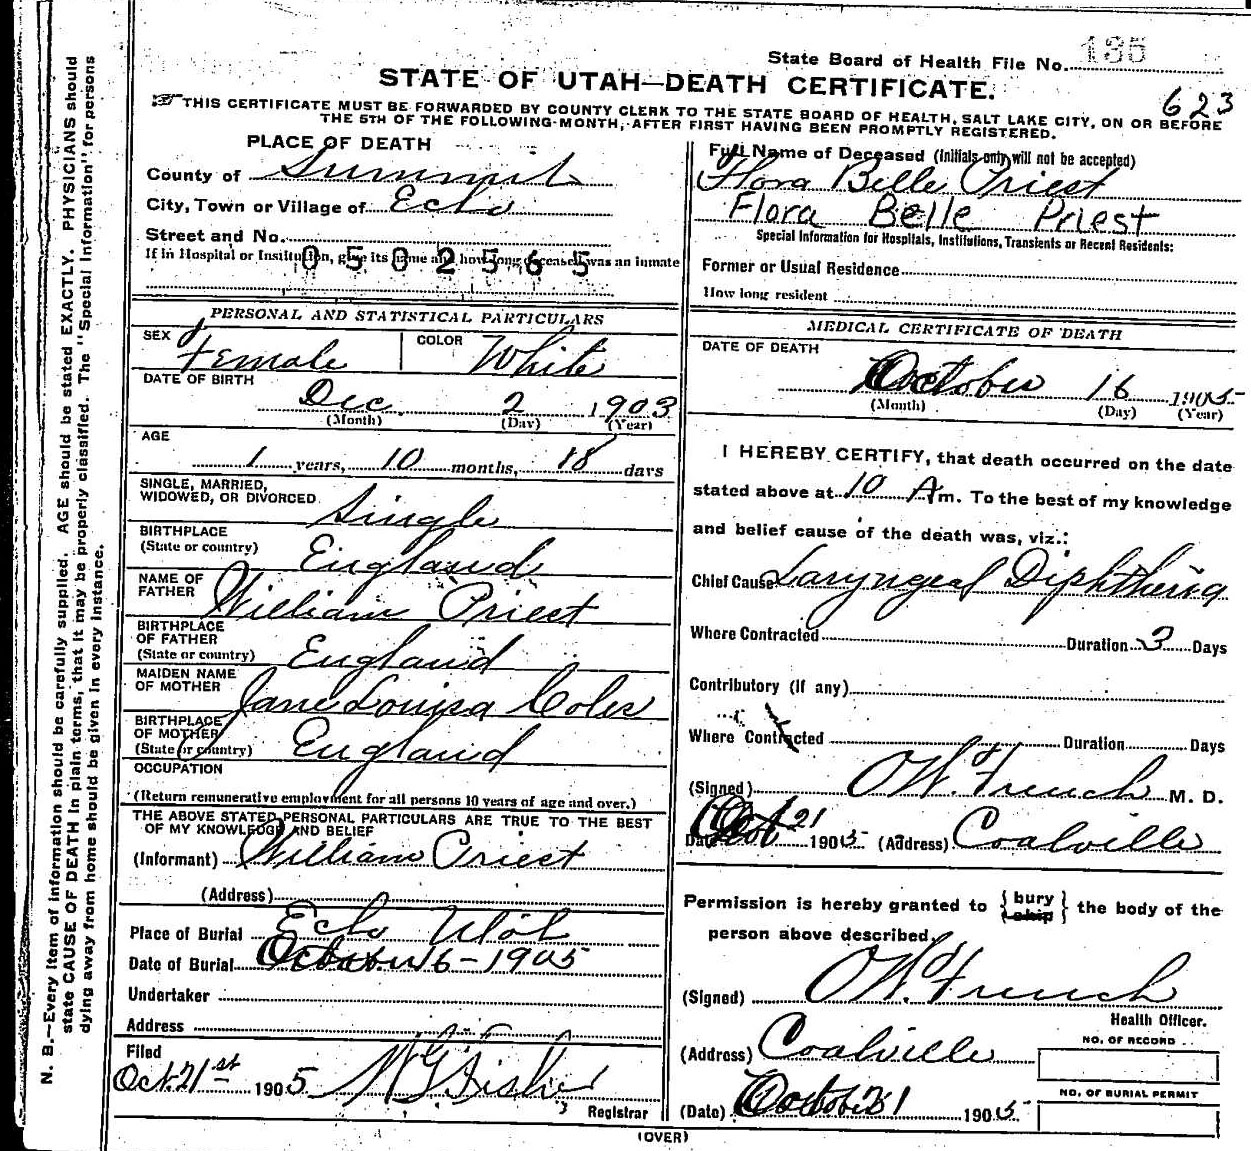 State Board of Health File No. 135
STATE OF UTAH—DEATH CERTIFICATE.
623
THIS CERTIFICATE MUST BE FORWARDED BY COUNTY CLERK TO THE STATE BOARD OF HEALTH, SALT LAKE CITY, ON OR BEFORE
THE 5TH OF THE FOLLOWING MONTH, AFTER FIRST HAVING BEEN PROMPTLY REGISTERED.
PLACE OF DEATH
County of Summit
City, Town or Village of Echo
Street and No.
If in Hospital or Institution, give its name and how long deceased was an inmate
0502565
PERSONAL AND STATISTICAL PARTICULARS
SEX Female COLOR White
DATE OF BIRTH
Dec. 2 1903
(Month) (Day) (Year)
AGE
1 years, 10 months, 18 days
SINGLE, MARRIED,
WIDOWED, OR DIVORCED Single
BIRTHPLACE
(State or country) England
NAME OF
FATHER William Priest
BIRTHPLACE
OF FATHER
(State or country) England
MAIDEN NAME
OF MOTHER Jane Louisa Coles
BIRTHPLACE
OF MOTHER
(State or country) England
OCCUPATION
(Return remunerative employment for all persons 10 years of age and over.)
THE ABOVE STATED PERSONAL PARTICULARS ARE TRUE TO THE BEST
OF MY KNOWLEDGE AND BELIEF
(Informant) William Priest
(Address)
Place of Burial Echo Utah
Date of Burial October 16-1905
Undertaker
Address
Filed
Oct. 21st 1905 Fisher
Registrar
Full Name of Deceased (Initials only will not be accepted)
Flora Belle Priest
Flora Belle Priest
Special Information for Hospitals, Institutions, Transients or Recent Residents:
Former or Usual Residence
How long resident
MEDICAL CERTIFICATE OF DEATH
DATE OF DEATH
October 16 1905
(Month) (Day) (Year)
I HEREBY CERTIFY, that death occurred on the date
stated above at 10 Am. To the best of my knowledge
and belief cause of the death was, viz.:
Chief Cause Laryngeal Diphtheria
Where Contracted Duration 3 Days
Contributory (if any)
Where Contracted Duration Days
(Signed) O W. French M. D.
Date Oct 21 1905 (Address) Coalville
Permission is hereby granted to {bury
ship} the body of the
person above described.
(Signed) O W. French
Health Officer.
(Address) Coalville
NO. OF RECORD
NO. OF BURIAL PERMIT
(Date) October 21 1905
(OVER)
N. B.—Every item of information should be carefully supplied. AGE should be stated EXACTLY. PHYSICIANS should
state CAUSE OF DEATH in plain terms, that it may be properly classified. The "Special Information" for persons
dying away from home should be given in every instance.